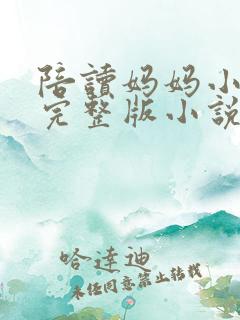 陪讀妈妈小
完整版小說
哈達迪
未经同意禁止转载